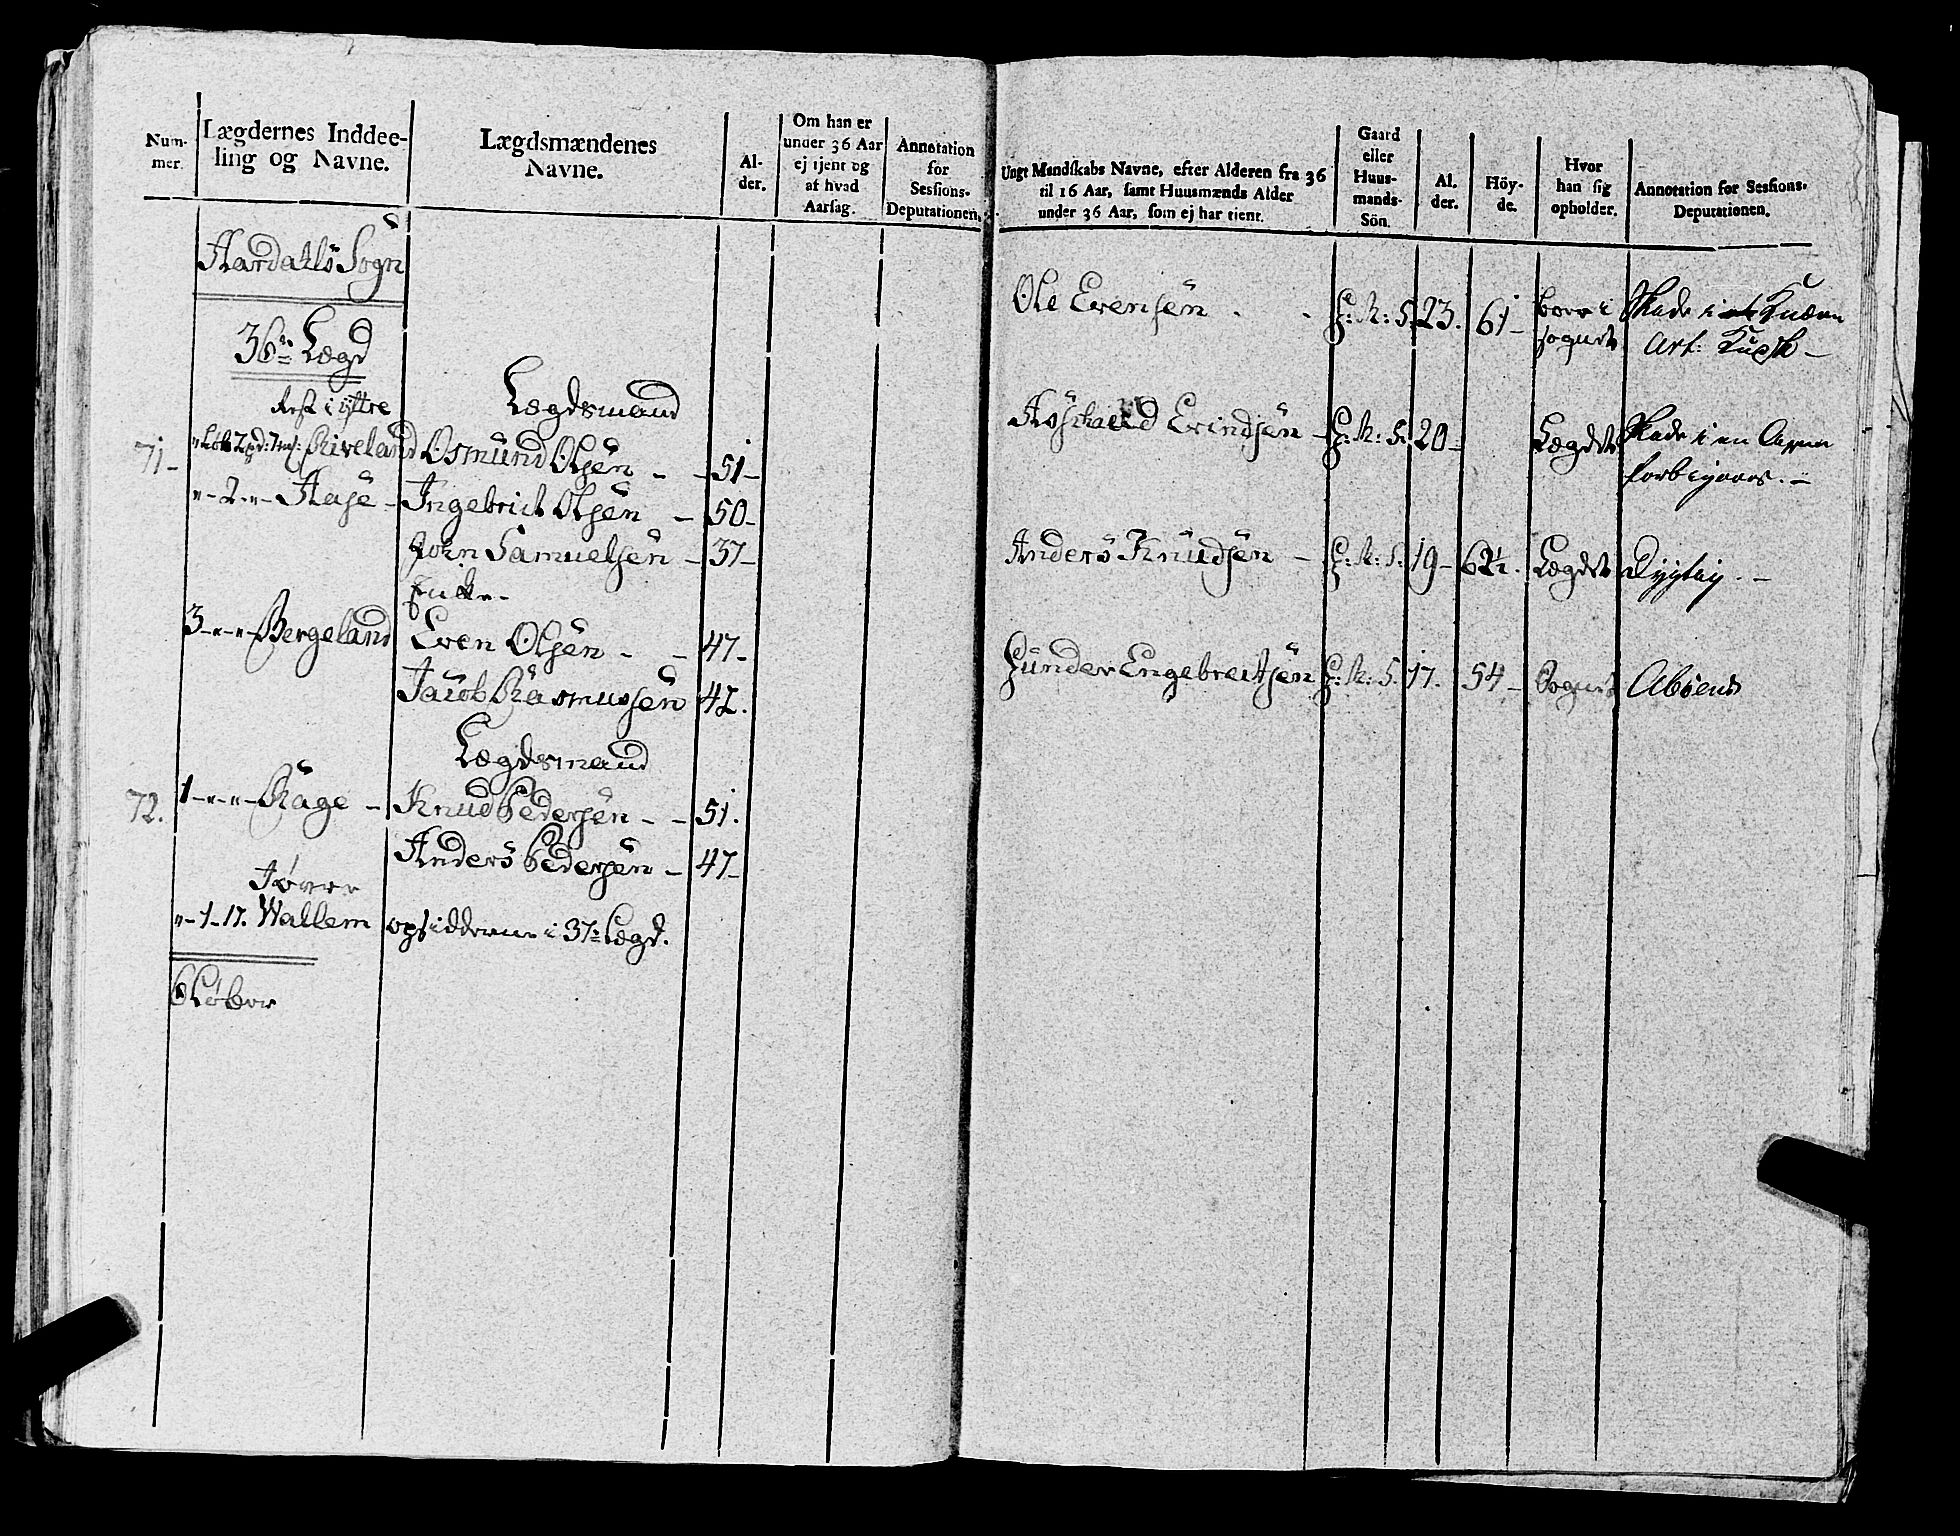 Num-
mer.
Lægdernes Inddee-
ling og Navne.
Lægdsmændenes
Navne.
Al-
der.
Om han er
under 36 Aar
ej tjent og
af hvad
Aarsag.
Annotation
for
Sessions-
Deputationen.
Hardahls Sogn
36te Lægd
Rest i yttre
Lægdsmand
71- Riveland Osmund Olsen - - 51-
"-2-"- Hase - Ingebrict Olsen - 50-
John Samuelsen - 37-
Enke-
3-"-"- Bergeland Even Olsen - - 47-
Jacob Rasmussen 42.
Lægdsmand
72. 1-"-"- Rage - Knud Pedersen - - 51.
Anders Pedersen - 47-
"-1-17. Wallem opsidderne i 37te Lægd.
6 Løber
Ungt Mandskabs Navne, efter Alderen fra 36
til 16 Aar, samt Huusmænds Alder
under 36 Aar, som ej har tient.
Gaard
eller
Huus-
mands-
Sön.
Al.
der.
Höy-
de.
Hvor
han sig
opholder.
Annotation for Sessions-
Deputationen.
Ole Evensen - - G: M: S. 23. 61- boer i Skade i et Knæe
sognet
Evindsen - G: M: S. 20- Lægdet Skade i en
Anders Knudsen - G: M: S. 19- 62½. Lægdet Dygtig. -
Gunder Engebreitsen G: M: S. 17. 54- Sognet Absent